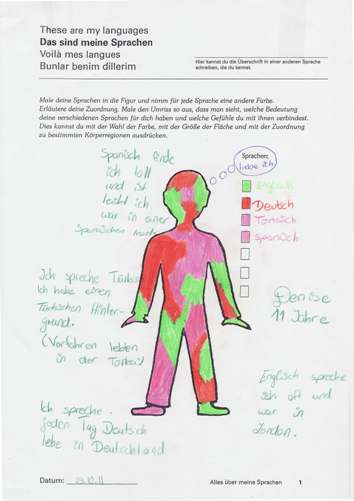 These are my languages
Das sind meine Sprachen
Voilà mes langues
Bunlar benim dillerim
Hier kannst du die Überschrift in einer anderen Sprache
schreiben, die du kennst.
Male deine Sprachen in die Figur und nimm für jede Sprache eine andere Farbe.
Erläutere deine Zuordnung. Male den Umriss so aus, dass man sieht, welche Bedeutung
deine verschiedenen Sprachen für dich haben und welche Gefühle du mit ihnen verbindest.
Dies kannst du mit der Wahl der Farbe, mit der Größe der Fläche und mit der Zuordnung
zu bestimmten Körperregionen ausdrücken.
Spanisch finde
ich toll
und ist
leicht ich
war in einer
Spanischen
Sprachen:
Liebe ich
Englisch
Deutsch
Türkisch
Spanisch
Ich spreche Türkisch
Ich habe einen
Türkischen Hinter-
grund.
(Vorfahren lebten
in der Türkei)
Denise
11 Jahre
Ich spreche
jeden Tag Deutsch
lebe in Deutschland
Englisch spreche
ich oft und
war in
London.
Datum:
Alles über meine Sprachen 1